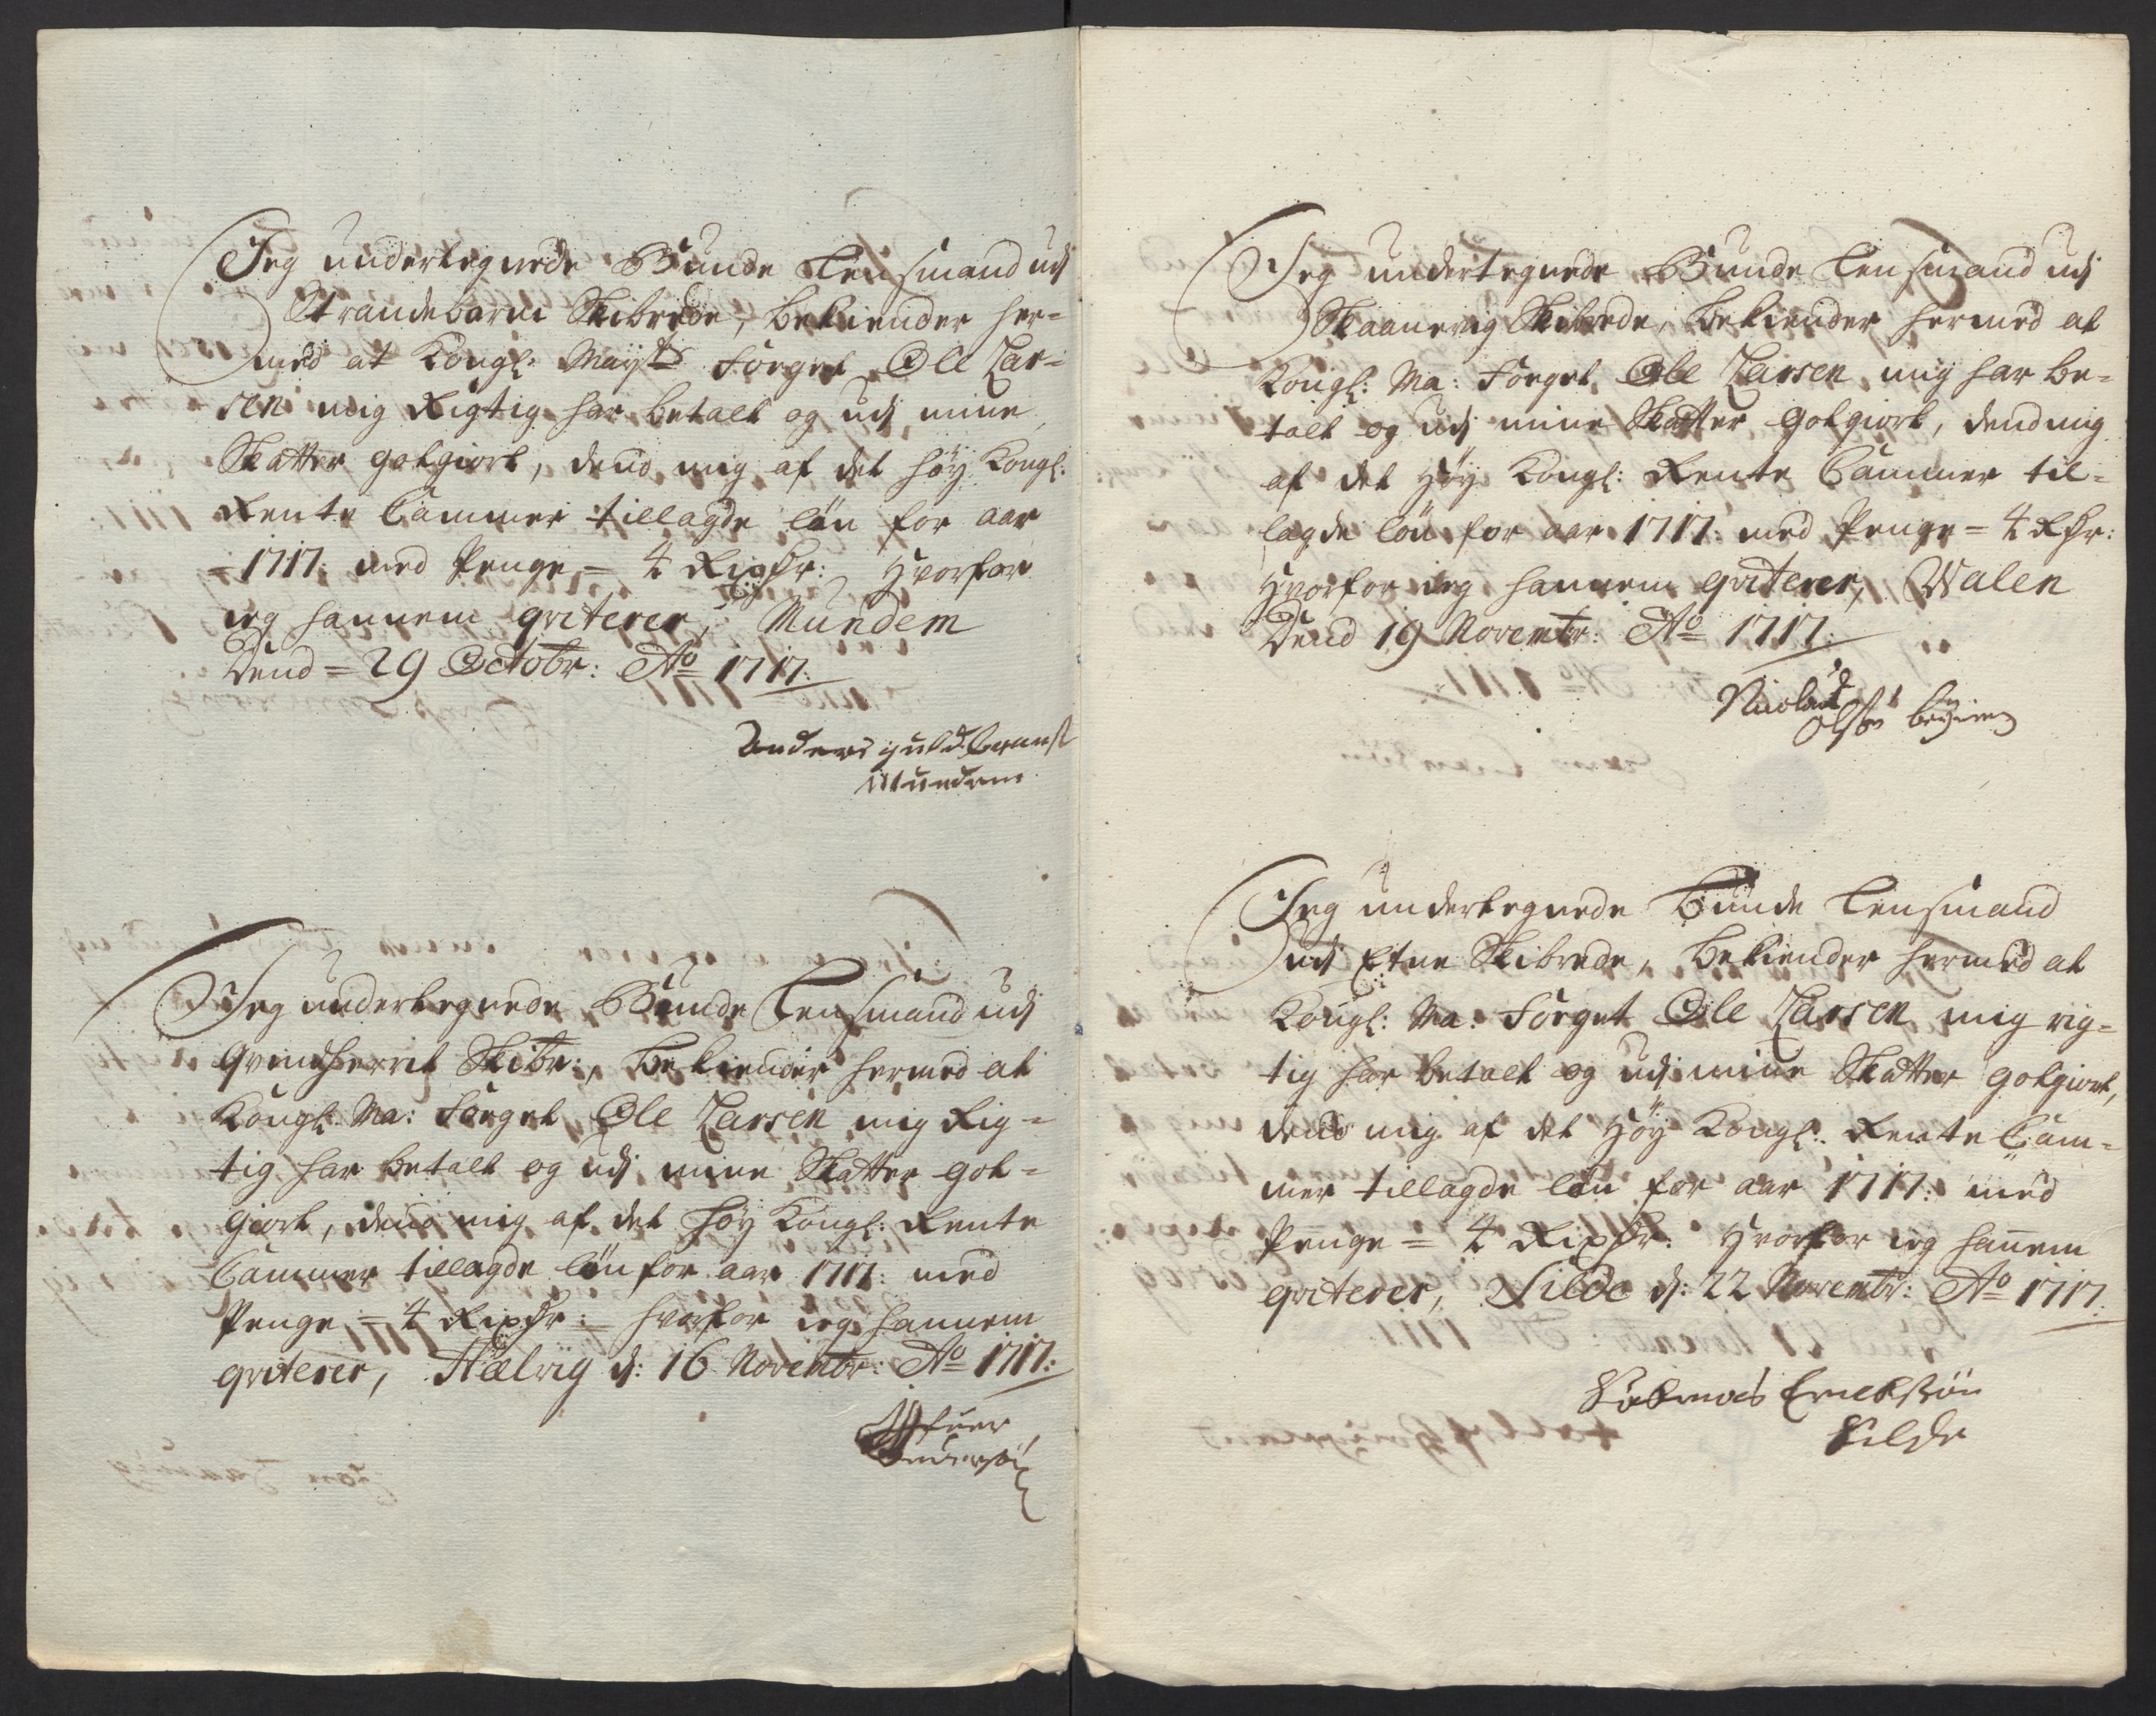 Jeg undertegnede Bunde Lensmand udj
Strandebarm Skibrede, bekiender her-
med at Kongl: Mayts Foeget Ole Lar-
sen mig Rigtig har betalt og udj mine
Skatter gotgiort, dend mig af det höy Kongl:
Rente Cammer tillagde lön for aar
- 1717: med Penge = 4 Rixdr: Hvorfor
ieg hannem qviterer, Mundem
Dend = 29 Octobr: Ao 1717:
Anders guldbrans
Mundem
Jeg undertegnede Bunde Lensmand udj
Qvindherret Skibr:, bekiender hermed at
Kongl: Ma: Foeget Ole Larsen mig Rig-
tig har betalt og udj mine Skatter got-
giort, dend mig af det höy Kongl: Rente
Cammer tillagde lön for aar 1717: med
Penge = 4 Rixdr: hvorfor ieg hannem
qviterer, Hælvig d: 16 Novembr: Ao 1717:
Andersøn
Jeg undertegnede Bunde Lensmand udj
Skaanevig Skibrede, bekiender hermed at
Kongl: Ma: Foeget Ole Larsen mig har be-
talt og udj mine Skatter gotgiort, dend mig
af det Höy Kongl: Rente Cammer til-
lagde lön for aar 1717: med Penge = 4 Rdr:
Hvorfor ieg hannem qviterer, Walen
Dend 19 Novembr: Ao 1717:
Nicolaus
Olsen
Jeg undertegnede Bunde Lensmand
udj Etne Skibrede, bekiender hermed at
Kongl: Ma: Foeget Ole Larsen mig rig-
tig har betalt og udj mine Skatter gotgiort,
dend mig af det Höy Kongl: Rente Cam-
mer tillagde lön for aar 1717: med
Penge = 4 Rixdr: Hvorfor ieg hannem
qviterer, Silde d: 22 Novembr: Ao 1717:
Erichsøn
Silde